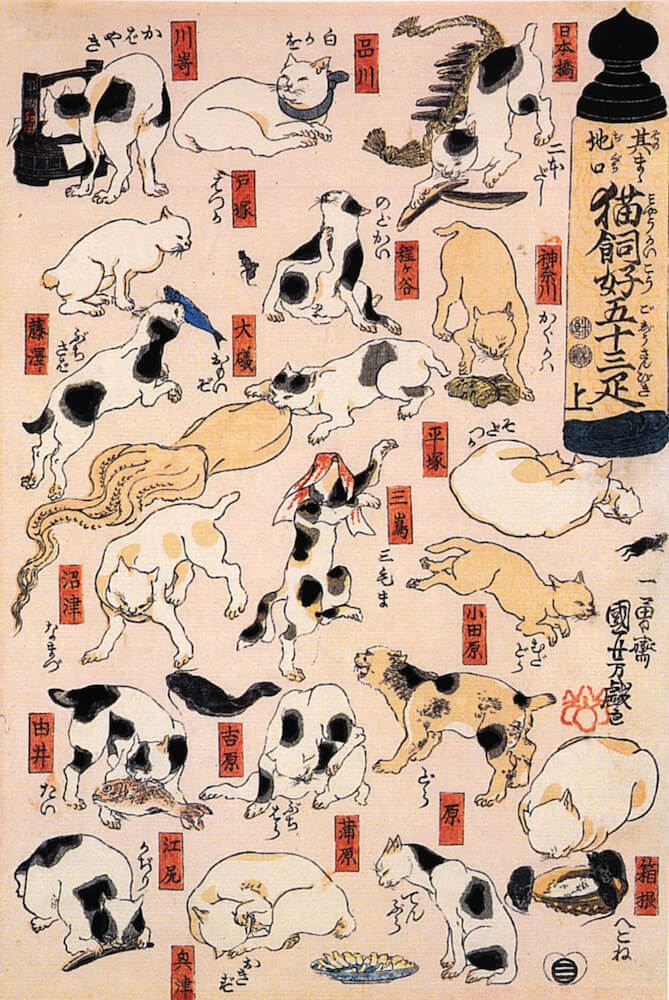 日本橋
二本だし
品川
白かを
川嵜
かばやき
其まゝ地口
猫飼好五十三疋
上
神奈川
かぐかハ
程ヶ谷
のどかい
戸塚
はつか
藤澤
ぶちさば
大礒
おもいぞ
平塚
そだつか
小田原
むだどら
三嶌
三毛ま
沼津
なまづ
一勇齋
國芳戯画
箱根
へこね
原
どら
吉原
ぶちはら
蒲原
てんぷら
由井
たい
奥津
おきず
江尻
かぢり